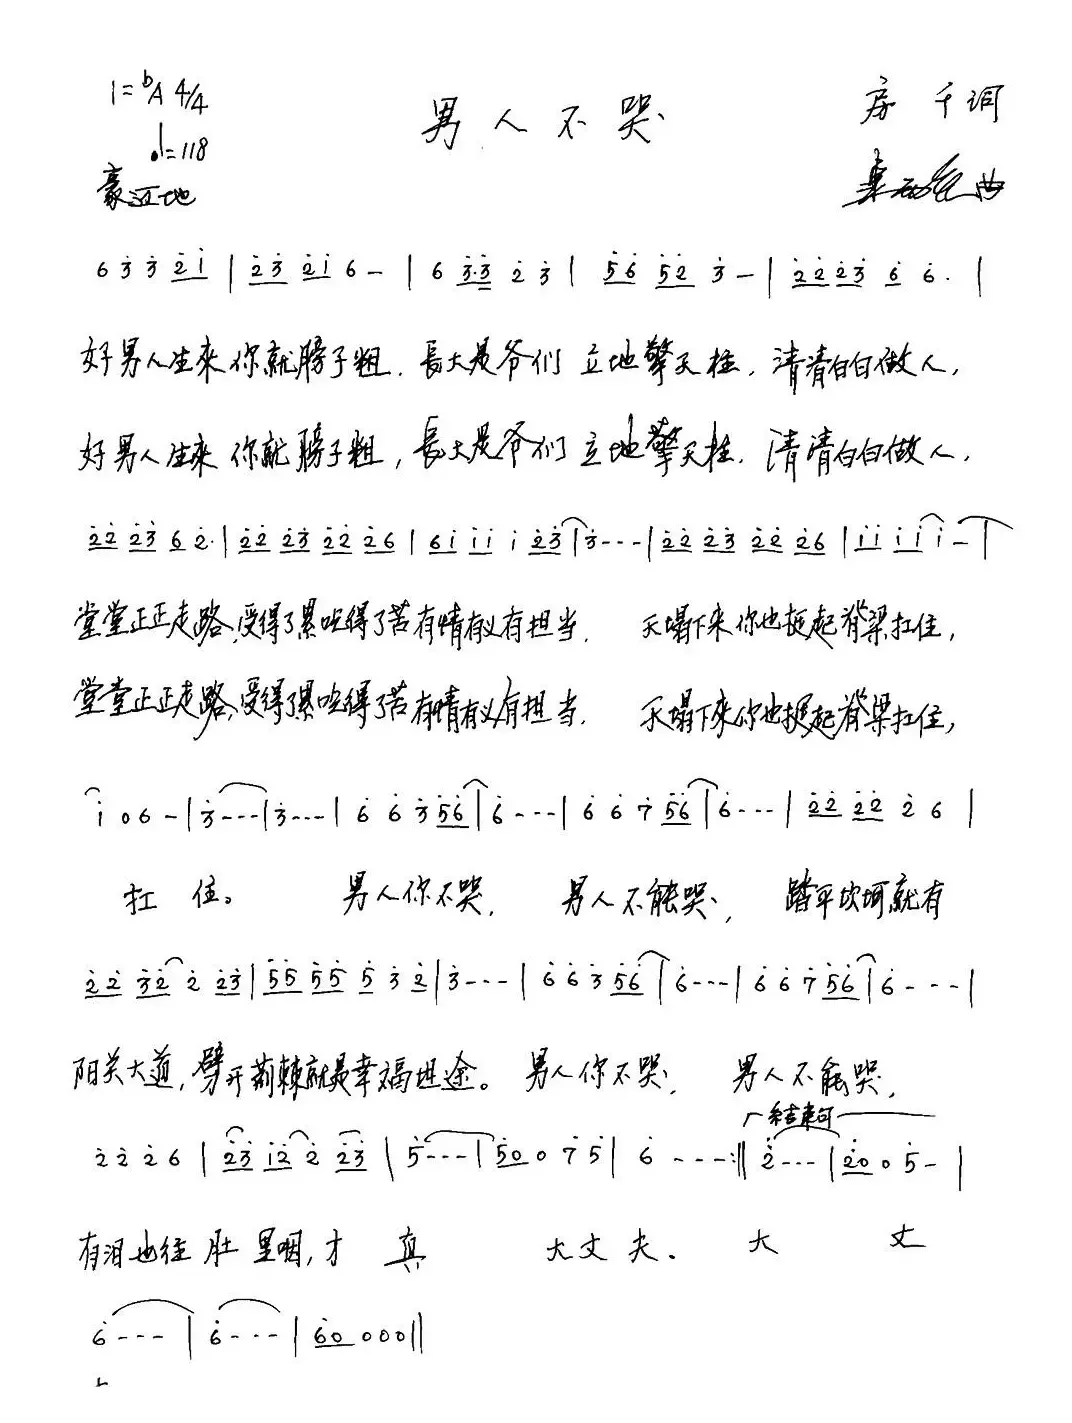 1=ᵇA 4/4
男人不哭
房千词
♩=118
豪迈地
曲
6 3̇ 3̇ 2̇ 1̇ | 2̇ 3̇ 2̇ 1̇ 6 – | 6 3̇·3̇ 2̇ 3̇ | 5̇ 6̇ 5̇ 2̇ 3̇ – | 2̇ 2̇ 2̇ 3̇ 6̇ 6̇· |
好男人生來你就膀子粗.長大是爷们立地擎天柱,清清白白做人,
好男人生来你就膀子粗,長大是爷们立地擎天柱.清清白白做人,
2̇ 2̇ 2̇ 3̇ 6̇ 2̇· | 2̇ 2̇ 2̇ 3̇ 2̇ 2̇ 2̇ 6 | 6 1̇ 1̇ 1̇ 1̇ 2̇ 3̇ | 3̇ - - - | 2̇ 2̇ 2̇ 3̇ 2̇ 2̇ 2̇ 6 | 1̇ 1̇ 1̇ 1̇ 1̇ – |
堂堂正正走路,受得了累吃得了苦有情有义有担当. 天塌下来你也挺起脊梁扛住,
堂堂正正走路,受得了累吃得了苦有情有义有担当. 天塌下來你也挺起脊梁扛住,
1̇ 0 6 – | 3̇ - - - | 3̇ - - - | 6̇ 6̇ 3̇ 5̇ 6̇ | 6̇ - - - | 6̇ 6̇ 7̇ 5̇ 6̇ | 6̇ - - - | 2̇ 2̇ 2̇ 2̇ 2̇ 6 |
扛住。 男人你不哭, 男人不能哭, 踏平坎坷就有
2̇ 2̇ 3̇ 2̇ 2̇ 2̇ 3̇ | 5̇ 5̇ 5̇ 5̇ 5̇ 3̇ 2̇ | 3̇ - - - | 6̇ 6̇ 3̇ 5̇ 6̇ | 6̇ - - - | 6̇ 6̇ 7̇ 5̇ 6̇ | 6̇ - - - |
阳关大道,劈开荊棘就是幸福坦途。男人你不哭, 男人不能哭,
结束句
2̇ 2̇ 2̇ 6 | 2̇ 3̇ 1̇ 2̇ 2̇ 2̇ 3̇ | 5̇ - - - | 5̇ 0 0 7̇ 5̇ | 6̇ - - - :‖ 2̇ - - - | 2̇ 0 0 5̇ – |
有泪也往肚里咽,才真 大丈夫。 大 丈
6̇ - - - | 6̇ - - - | 6̇ 0 0 0 0 ‖